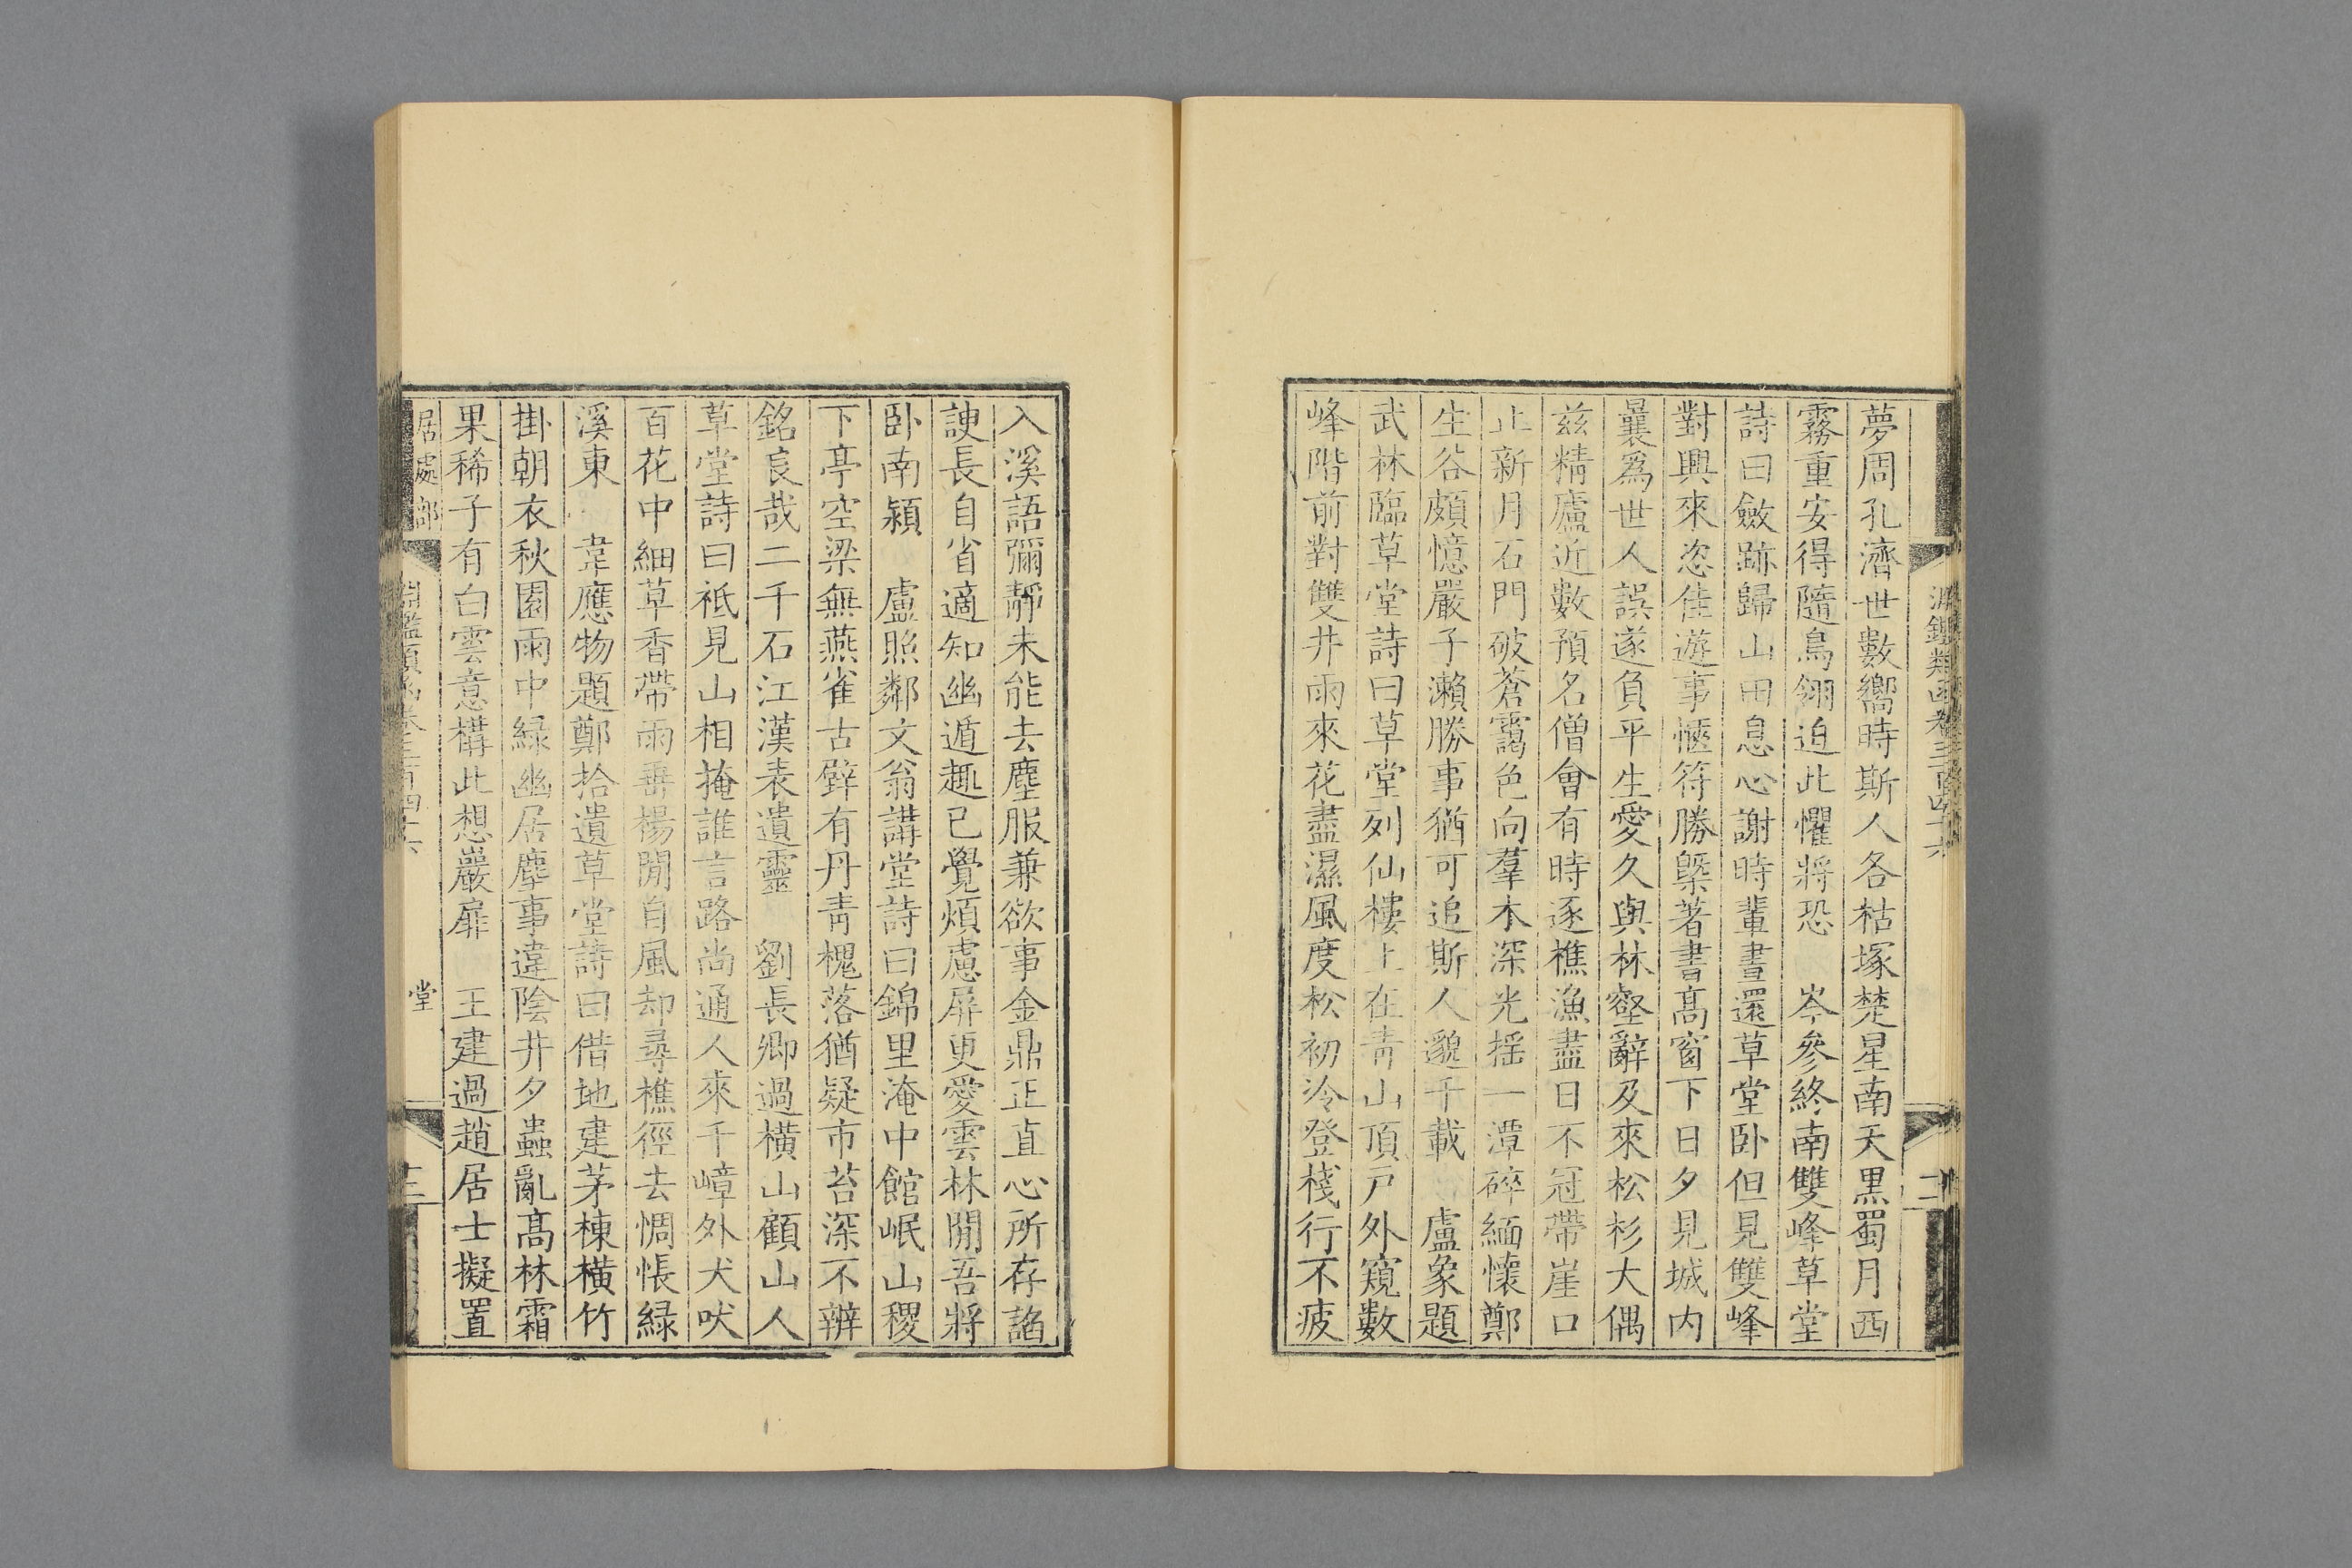 淵鑑類函卷三百四十六
二
夢周孔濟世數嚮時斯人各枯塚楚星南天黒蜀月西
霧重安得隨鳥翎迫此懼將恐　岑參終南雙峰草堂
詩曰斂跡歸山田息心謝時輩晝還草堂卧但見雙峰
對興來恣佳遊事愜符勝槩著書髙窗下日夕見城内
曩爲世人誤遂負平生愛久與林壑辭及來松杉大偶
兹精廬近數預名僧會有時逐樵漁盡日不冠帶崖口
止新月石門破蒼靄色向羣木深光揺一潭碎緬懷鄭
生谷頗憶嚴子瀨勝事猶可追斯人邈千載　盧象題
武林臨草堂詩曰草堂列仙樓上在青山頂戸外窺數
峰階前對雙井雨來花盡濕風度松初冷登棧行不疲
入溪語彌靜未能去塵服兼欲事金鼎正直心所存諂
諛長自省適知幽遁趣已覺煩慮屏更愛雲林閒吾將
卧南潁　盧照鄰文翁講堂詩曰錦里淹中館岷山稷
下亭空梁無燕雀古壁有丹青槐落猶疑市苔深不辨
銘良哉二千石江漢表遺靈　劉長卿過橫山顧山人
草堂詩曰祗見山相掩誰言路尚通人來千嶂外犬吠
百花中細草香帶雨垂楊閒自風却尋樵徑去惆悵緑
溪東　韋應物題鄭拾遺草堂詩曰借地建茅棟橫竹
掛朝衣秋園雨中緑幽居塵事違陰井夕蟲亂髙林霜
果稀子有白雲意構此想巖扉　王建過趙居士擬置
居處部
淵鑑類函卷三百四十六
堂
三